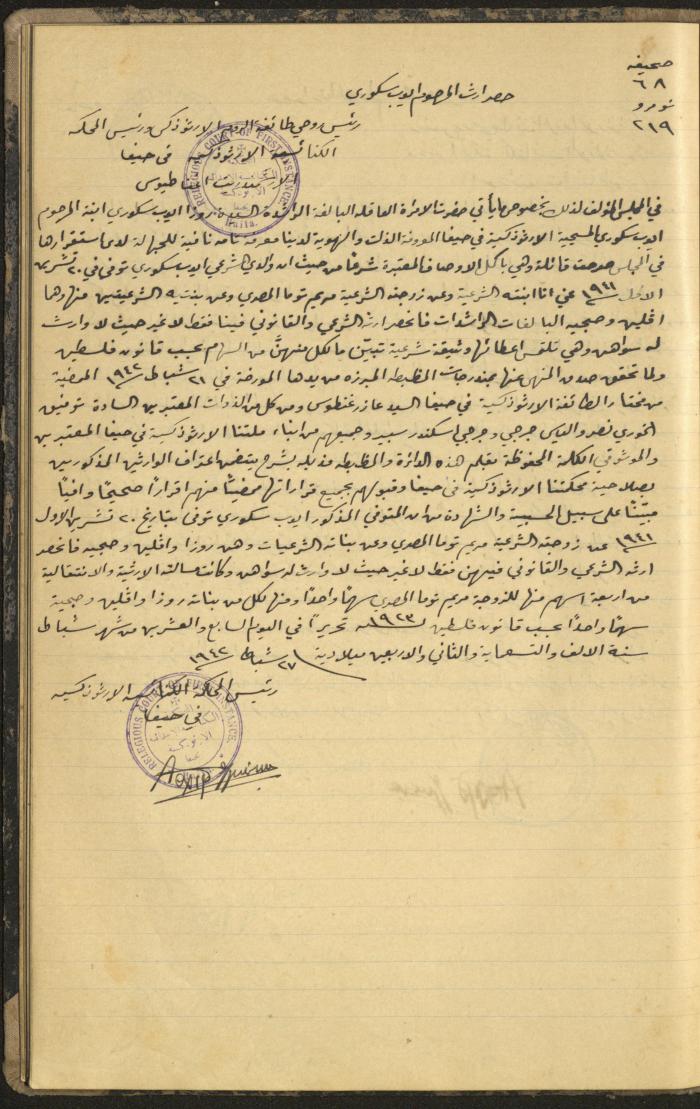 صحيفه
٦٨
نومرو
٢١٩
حصر ارث المرحوم اديب سكوري
رئيس روحي طائفة الروم الارثوذكس ورئيس المحكمة
الكنائسية الارثوذكسية في حيفا
الارشمندريت اغناطيوس
في المجلس المؤلف لذلك بخصوص ما يأتي حضرت الامرأة العاقلة البالغة الراشدة السيدة روزا اديب سكوري ابنة المرحوم
اديب سكوري المسيحية الارثوذكسية في حيفا المعروفة الذات والهوية لدينا معرفة تامة نافية للجهالة لدى استقرارها
في المجلس صرحت قائلة وهي باكمل الاوصاف المعتبرة شرعًا من حيث ان والدي الشرعي اديب سكوري توفي في ٢٠ تشرين
الاول ١٩٤١ عني انا ابنته الشرعية وعن زوجته الشرعية مريم توما المصري وعن بنتيه الشرعيتين منها وهما
اڤلين وصجيه البالغات الراشدات فانحصر ارثه الشرعي والقانوني فينا فقط لا غير حيث لا وارث
له سواهن وهي تلتمس اعطائها وثيقة شرعية تبين ما لكل منهنَّ من السهام بحسب قانون فلسطين
ولما تحقق صدق المنهى عنها بمندرجات المظبطه المبرزه من يدها المورخة في ٢١ شباط ١٩٤٢ الممضية
من مختار الطائفة الارثوذكسية في حيفا السيد عازر غنطوس ومن كل من الذوات المعتبرين السادة توفيق
الخوري نصر والياس جرجي وجرجي اسكندر سبيد وجميعهم من ابناء ملتنا الارثوذكسية في حيفا المعتبرين
والموثوقي الكلمة المحفوظة بقلم هذه الدائرة والمظبطه مذيله بشرح يتضمن اعتراف الوارثين المذكورين
بصلاحية محكمتنا الارثوذكسية في حيفا وقبولهم بجميع قراراتها ممضيًا منهم اقرارًا صحيحًا وافيًا
مبينًا على سبيل الحسبية والشهادة من ان المتوفي المذكور اديب سكوري توفي بتاريخ ٢٠ تشرين الاول
١٩٤١ عن زوجته الشرعية مريم توما المصري وعن بناته الشرعيات وهن روزا واڤلين وصجيه فانحصر
ارثه الشرعي والقانوني فيهن فقط لا غير حيث لا وارث له سواهن وكانت مسألته الارثية والانتقالية
من اربعة اسهم منها للزوجة مريم توما المصري سهمًا واحدًا ومنها لكل من بناته روزا واڤلين وصجية
سهمًا واحدًا بحسب قانون فلسطين لسنة ١٩٢٣ تحريرًا في اليوم السابع والعشرين من شهر شباط
سنة الالف والتسعماية والثاني والاربعين ميلادية ٢٧ شباط ١٩٤٢
رئيس المحكمة الكنائسية الارثوذكسية
في حيفا
RELIGIOUS COURT OF FIRST INSTANCE
Haifa
RELIGIOUS COURT OF FIRST INSTANCE